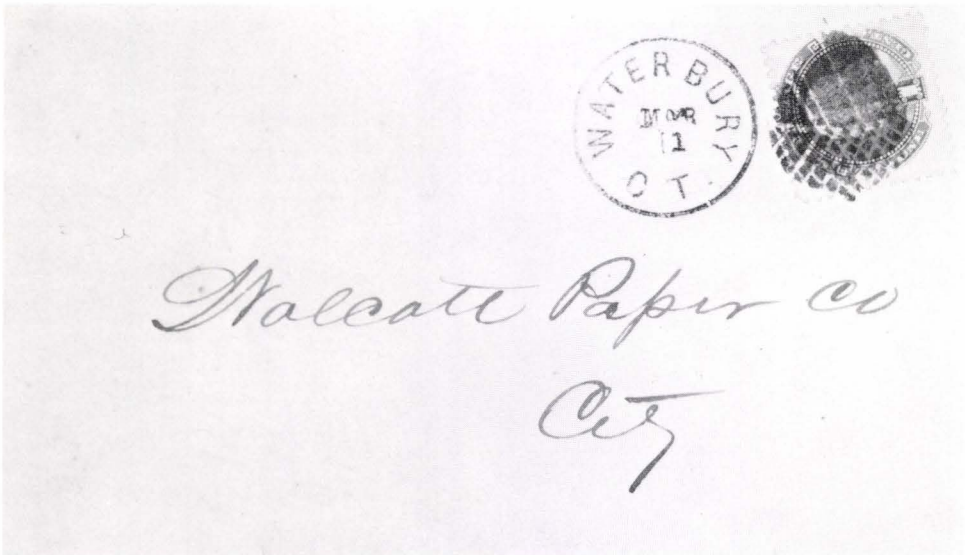 WATERBURY
MAR
11
CT.
Walcott Paper Co
City